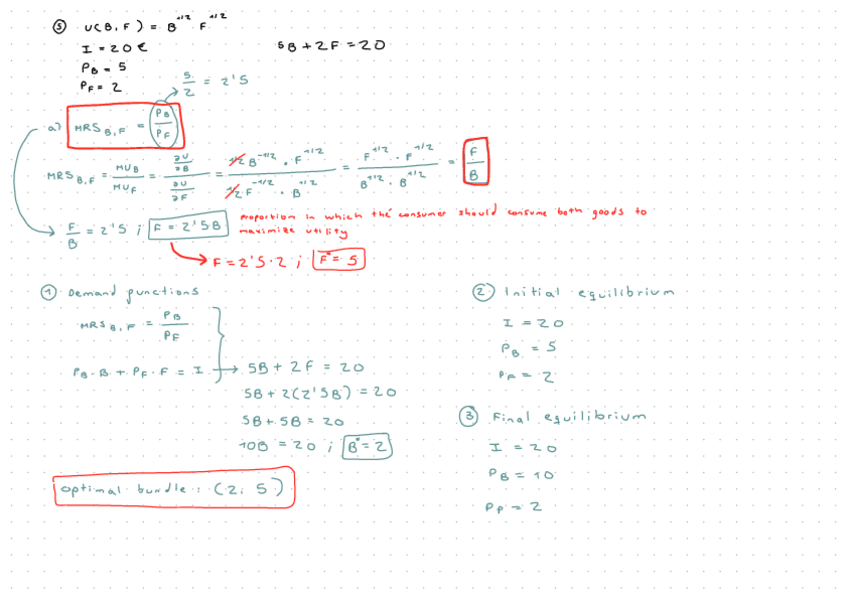 ⑤ U(B,F) = B^1/2 F^1/2
I = 20 €
5B + 2F = 20
P_B = 5
P_F = 2
5/2 = 2'5
a) MRS_B,F = P_B/P_F
MRS_B,F = MU_B/MU_F = (∂U/∂B)/(∂U/∂F) = (1/2 B^-1/2 · F^1/2)/(1/2 F^-1/2 · B^1/2) = (F^1/2 · F^1/2)/(B^1/2 · B^1/2) = F/B
F/B = 2'5 ; F = 2'5B
proportion in which the consumer should consume both goods to
maximize utility
F = 2'5·2 ; F* = 5
① Demand functions
MRS_B,F = P_B/P_F
P_B · B + P_F · F = I → 5B + 2F = 20
5B + 2(2'5B) = 20
5B + 5B = 20
10B = 20 ; B* = 2
optimal bundle: (2; 5)
② Initial equilibrium
I = 20
P_B = 5
P_F = 2
③ Final equilibrium
I = 20
P_B = 10
P_F = 2